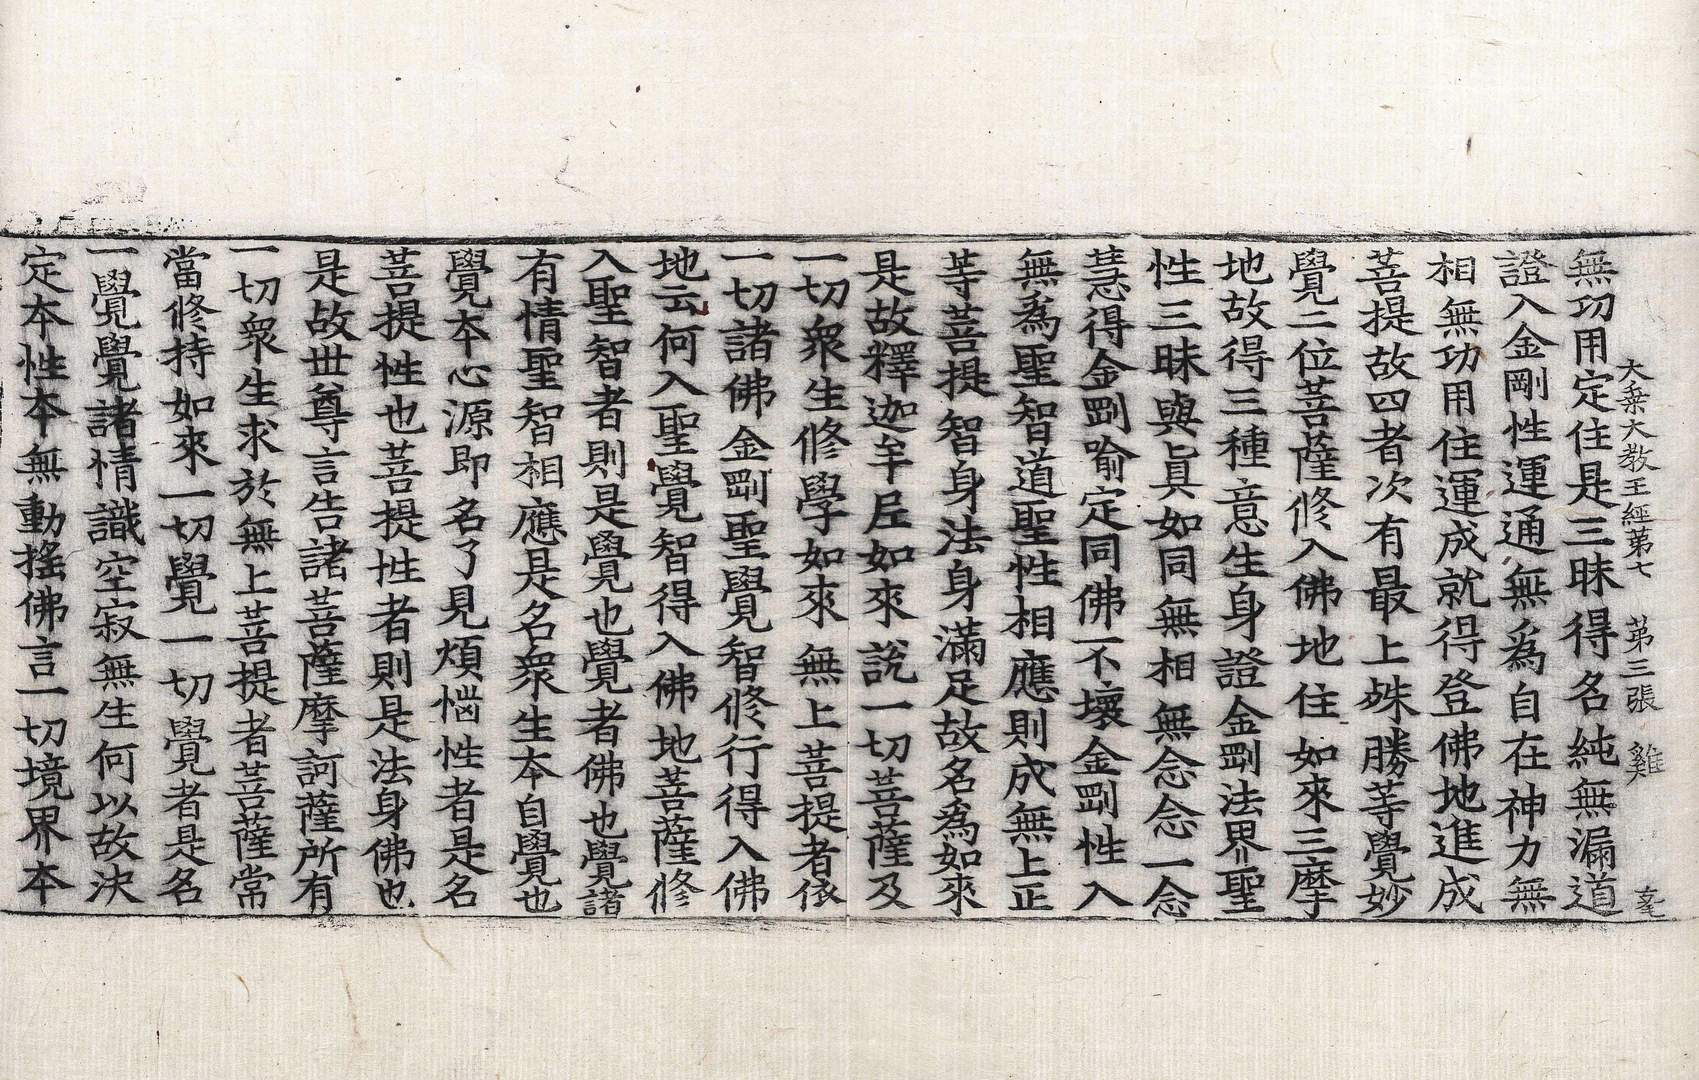 大乗大教王經苐七 苐三張 雞
無功用定住是三昧得名純無漏道
證入金剛性運通無爲自在神力無
相無功用住運成就得登佛地進成
菩提故四者次有最上殊勝等覺妙
覺二位菩薩修入佛地住如來三摩
地故得三種意生身證金剛法界聖
性三昧與真如同無相無念念一念
慧得金剛喻定同佛不壞金剛性入
無爲聖智道聖性相應則成無上正
等菩提智身法身滿足故名爲如來
是故釋迦牟尼如來說一切菩薩及
一切衆生修學如來無上菩提者依
一切諸佛金剛聖覺智修行得入佛
地云何入聖覺智得入佛地菩薩修
入聖智者則是覺也覺者佛也覺諸
有情聖智相應是名衆生本自覺也
覺本心源即名了見煩惱性者是名
菩提性也菩提性者則是法身佛也
是故世尊言告諸菩薩摩訶薩所有
一切衆生求於無上菩提者菩薩常
當修持如來一切覺一切覺者是名
一覺覺諸情識空寂無生何以故決
定本性本無動搖佛言一切境界本